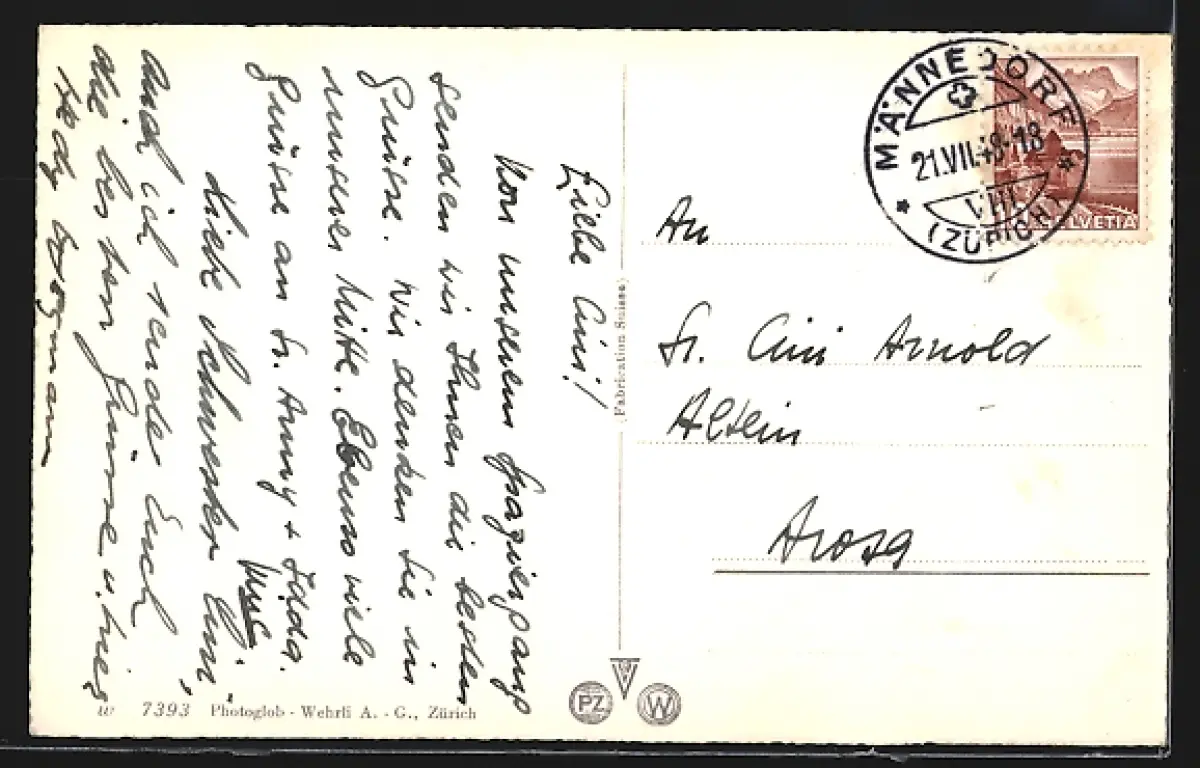 Liebe Cini!
Von unserem Spaziergang
senden wir Ihnen die besten
Grüsse. Wir denken Sie in
unserer Mitte. Ebenso viele
Grüsse an Sr. Anny + Idda.
Liebe Schwester Cini,
auch ich sende Euch
die besten Grüsse u.
Hedy
w 7393 Photoglob - Wehrli A. - G., Zürich
(Fabrication Suisse)
PZ W
MÄNNEDORF
21.VII.48-18
VIII
(ZÜRICH)
HELVETIA
An
Sr. Cini Arnold
Altein
Arosa